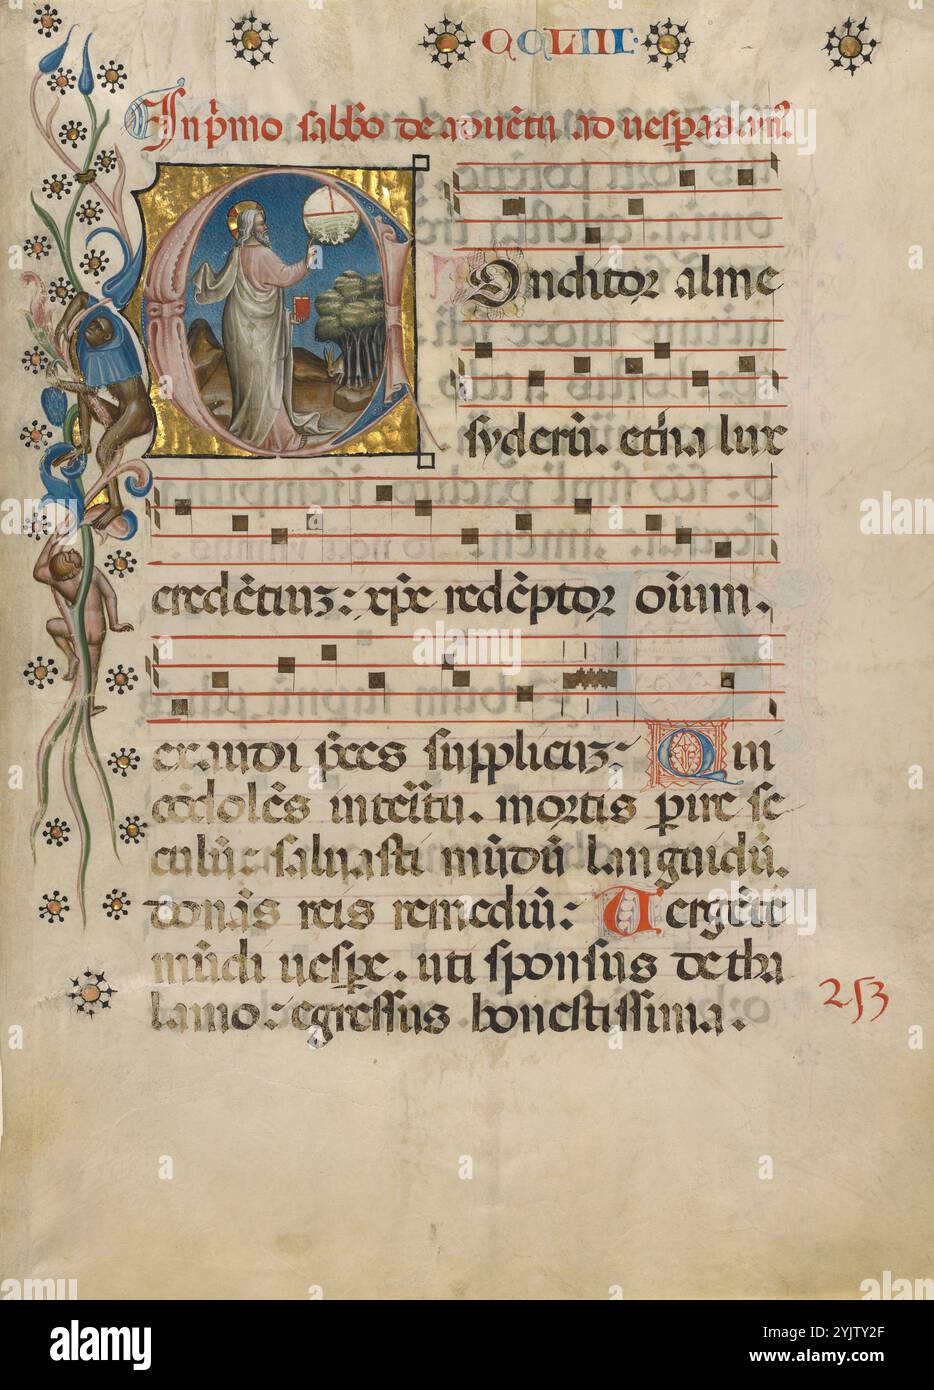 CCLIII
In p̄mo sabb̄o de aduētu ad uesperas. ym̄.
Onditor alme
syderū. etn̄a lux
credētiuȝ: xp̄e redēptor oīum.
exaudi p̄ces supplicuȝ: Qui
cōdolēs interitu. mortis perire se
culū: saluasti mūdū languidū.
donās reis remediū: Uergēte
mūdi uespe. uti sponsus de tha
lamo: egressus honestissima.
253
alamy
Image ID: 2YJTY2F
www.alamy.com